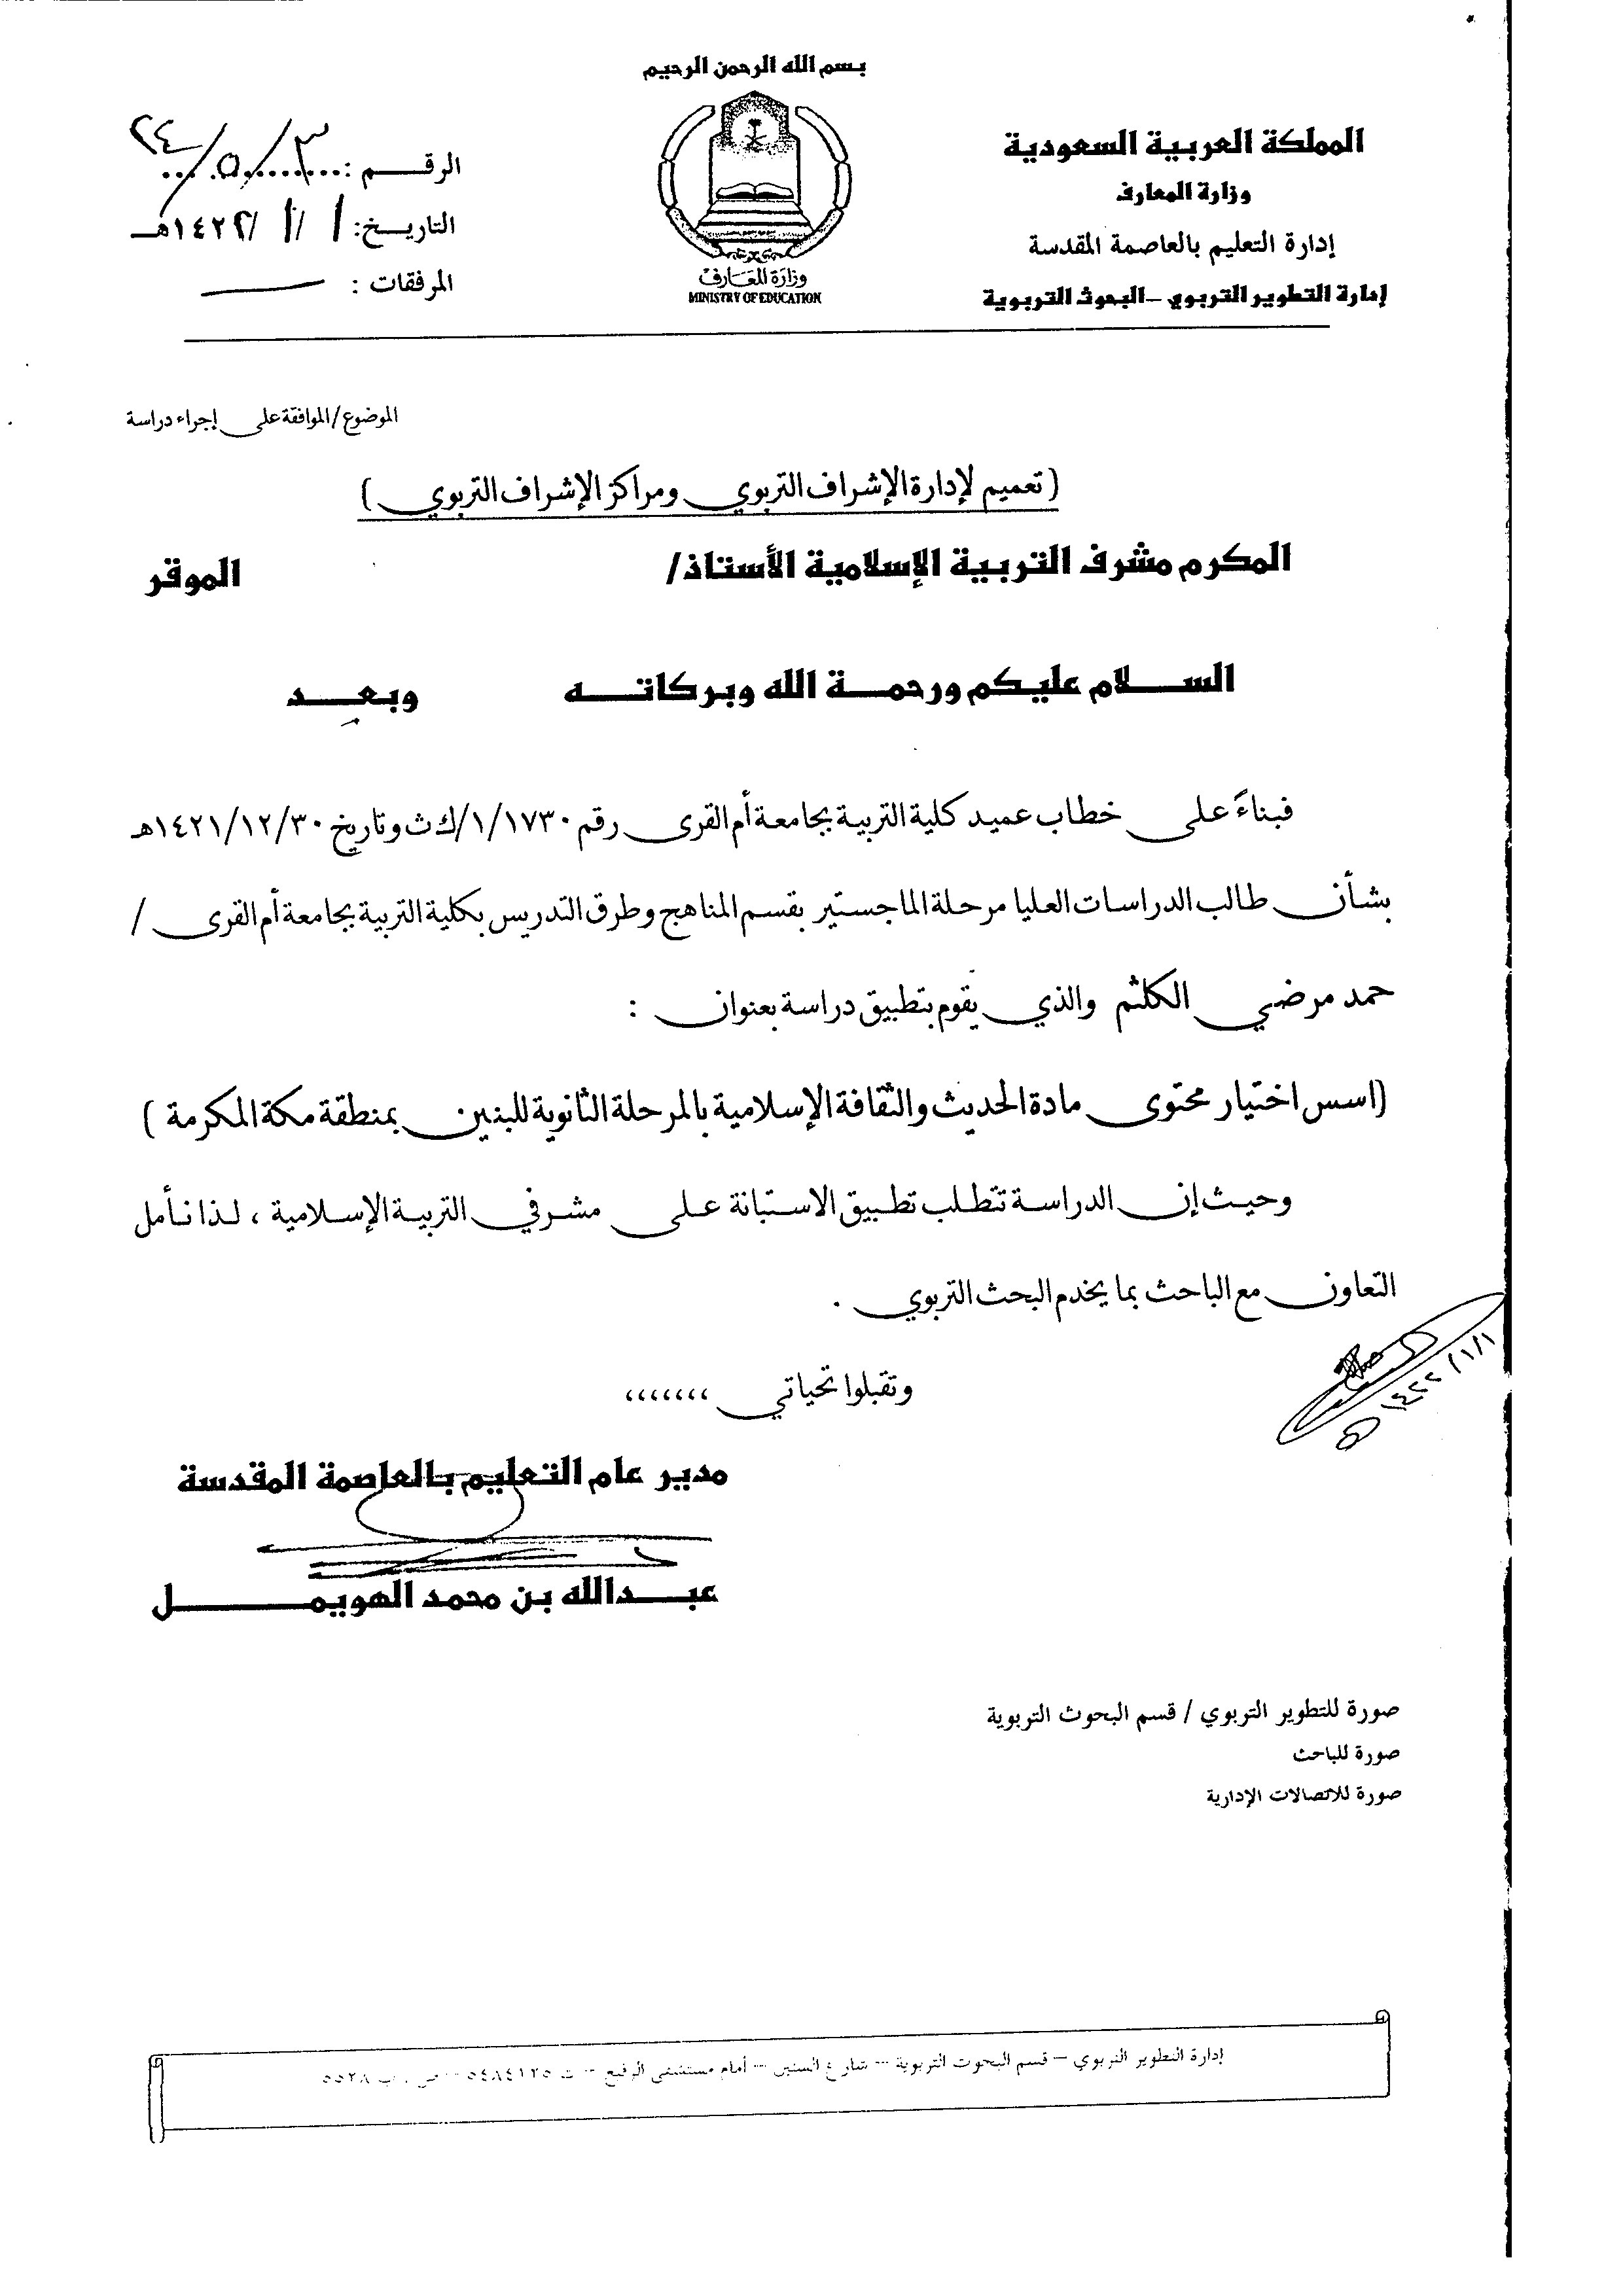 بسم الله الرحمن الرحيم
المملكة العربية السعودية
وزارة المعارف
إدارة التعليم بالعاصمة المقدسة
إدارة التطوير التربوي – البحوث التربوية
وزارة المعارف
MINISTRY OF EDUCATION
الرقـــــم : ٣/٥/٢٤
التاريـــخ: ١ /١ /١٤٢٢هـ
المرفقات :
الموضوع/الموافقة على إجراء دراسة
( تعميم لإدارة الإشراف التربوي ومراكز الإشراف التربوي )
المكرم مشرف التربية الإسلامية الأستاذ/ الموقر
الســـلام عليكم ورحمـــة الله وبركاتـــه وبعـــد
فبناءً على خطاب عميد كلية التربية بجامعة أم القرى رقم ١/١٧٣٠/ك ث وتاريخ ١٤٢١/١٢/٣٠هـ
بشأن طالب الدراسات العليا مرحلة الماجستير بقسم المناهج وطرق التدريس بكلية التربية بجامعة أم القرى /
حمد مرضي الكلثم والذي يقوم بتطبيق دراسة بعنوان :
(اسس اختيار محتوى مادة الحديث والثقافة الإسلامية بالمرحلة الثانوية للبنين بمنطقة مكة المكرمة )
وحيث إن الدراسة تتطلب تطبيق الاستبانة على مشرفي التربية الإسلامية ، لذا نأمل
التعاون مع الباحث بما يخدم البحث التربوي .
وتقبلوا تحياتي ،،،،،،،
١٤٢٢/١/١
مدير عام التعليم بالعاصمة المقدسة
عبـــدالله بن محمد الهويمـــــــل
صورة للتطوير التربوي / قسم البحوث التربوية
صورة للباحث
صورة للاتصالات الإدارية
إدارة التطوير التربوي – قسم البحوث التربوية – شارع الستين – أمام مستشفى الرفيع – ت ٥٤٨٤١٢٥ – ص . ب ٥٥٢٨